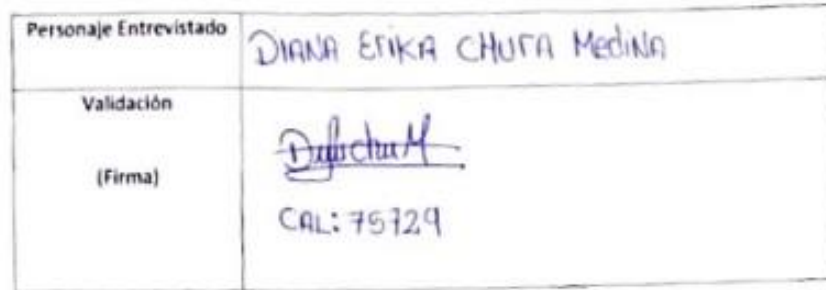 Personaje Entrevistado
DIANA ERIKA CHURA MediNA
Validación
(Firma)
CAL: 75729